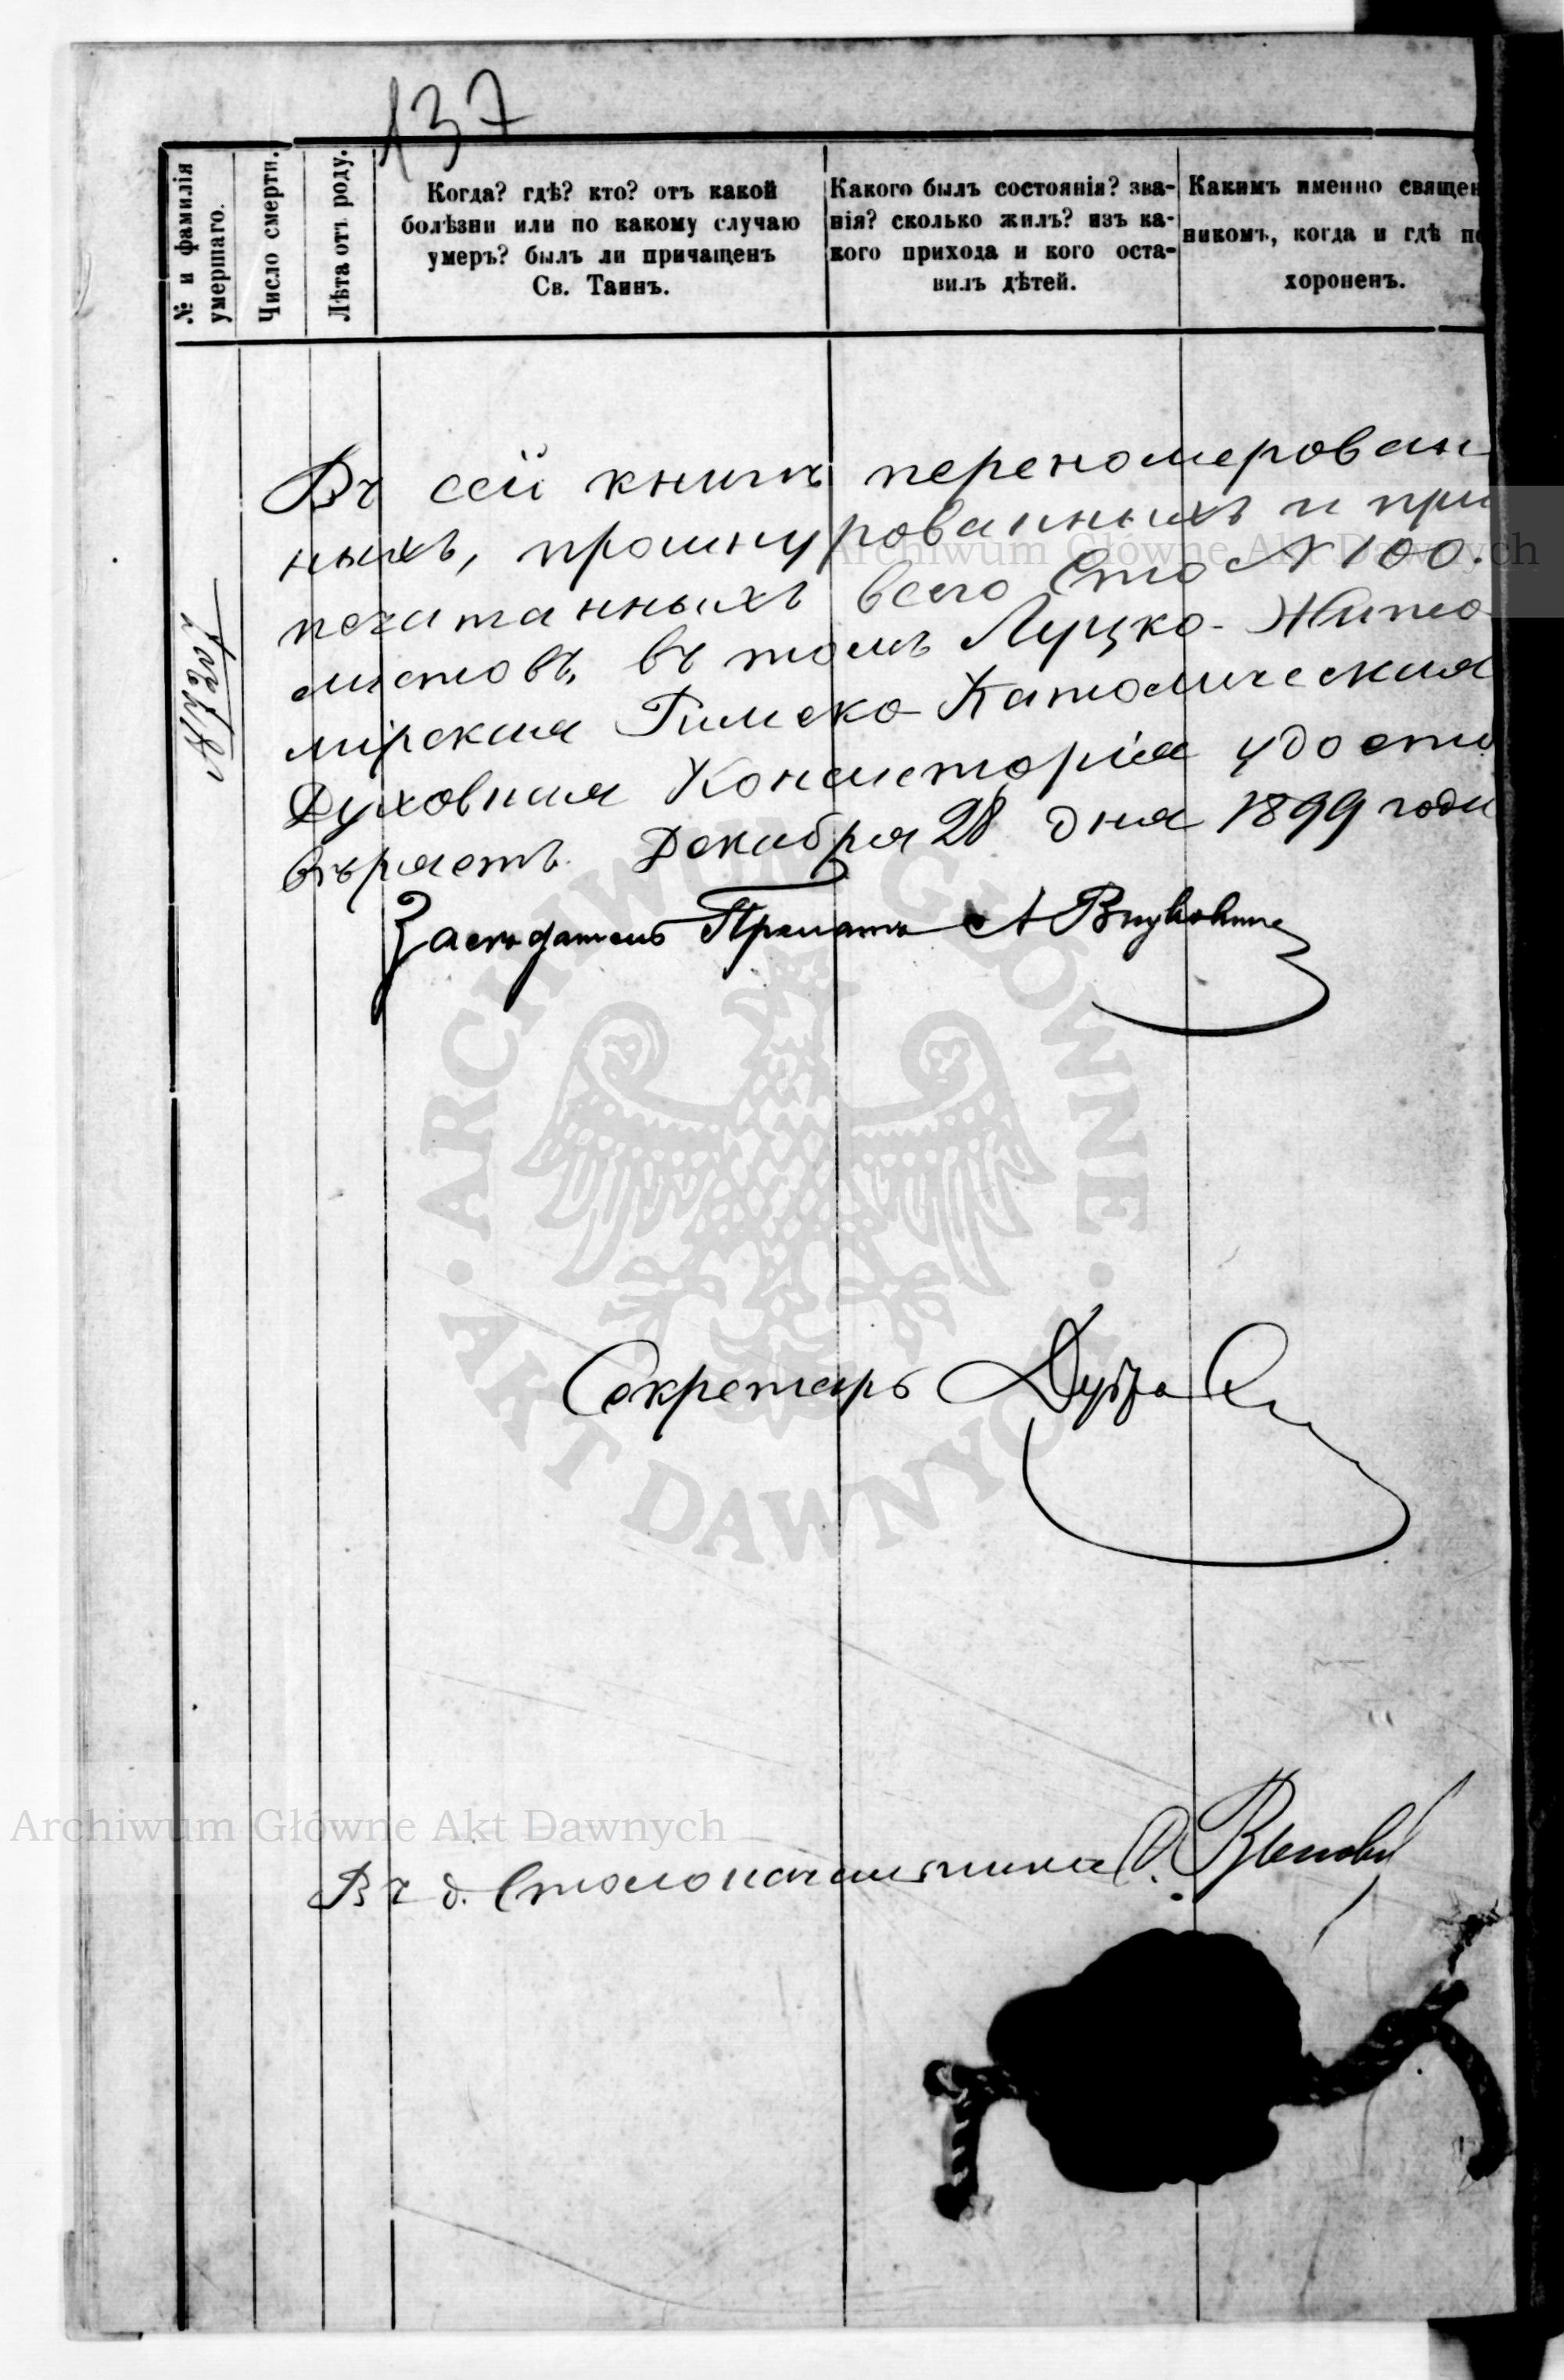 137
№ и фамилія
умершаго.
Число смерти.
Лѣта отъ роду.
Когда? гдѣ? кто? отъ какой
болѣзни или по какому случаю
умеръ? былъ ли причащенъ
Св. Таинъ.
Какого былъ состоянія? зва-
нія? сколько жилъ? изъ ка-
кого прихода и кого оста-
вилъ дѣтей.
Какимъ именно священ
никомъ, когда и гдѣ по
хороненъ.
Въ сей книгѣ переномерован
ныхъ, прошнурованныхъ и при
печатанныхъ всего Сто N 100.
листовъ, въ томъ Луцко-Жито
мірская Римско-Католическая
Духовная Консисторія удосто
вѣряетъ. Декабря 28 дня 1899 года
Засѣдатель Прелатъ А
Секретарь
Въ д. Столоначальника
Archiwum Główne Akt Dawnych
Archiwum Główne Akt Dawnych
ARCHIWUM GŁÓWNE AKT DAWNYCH